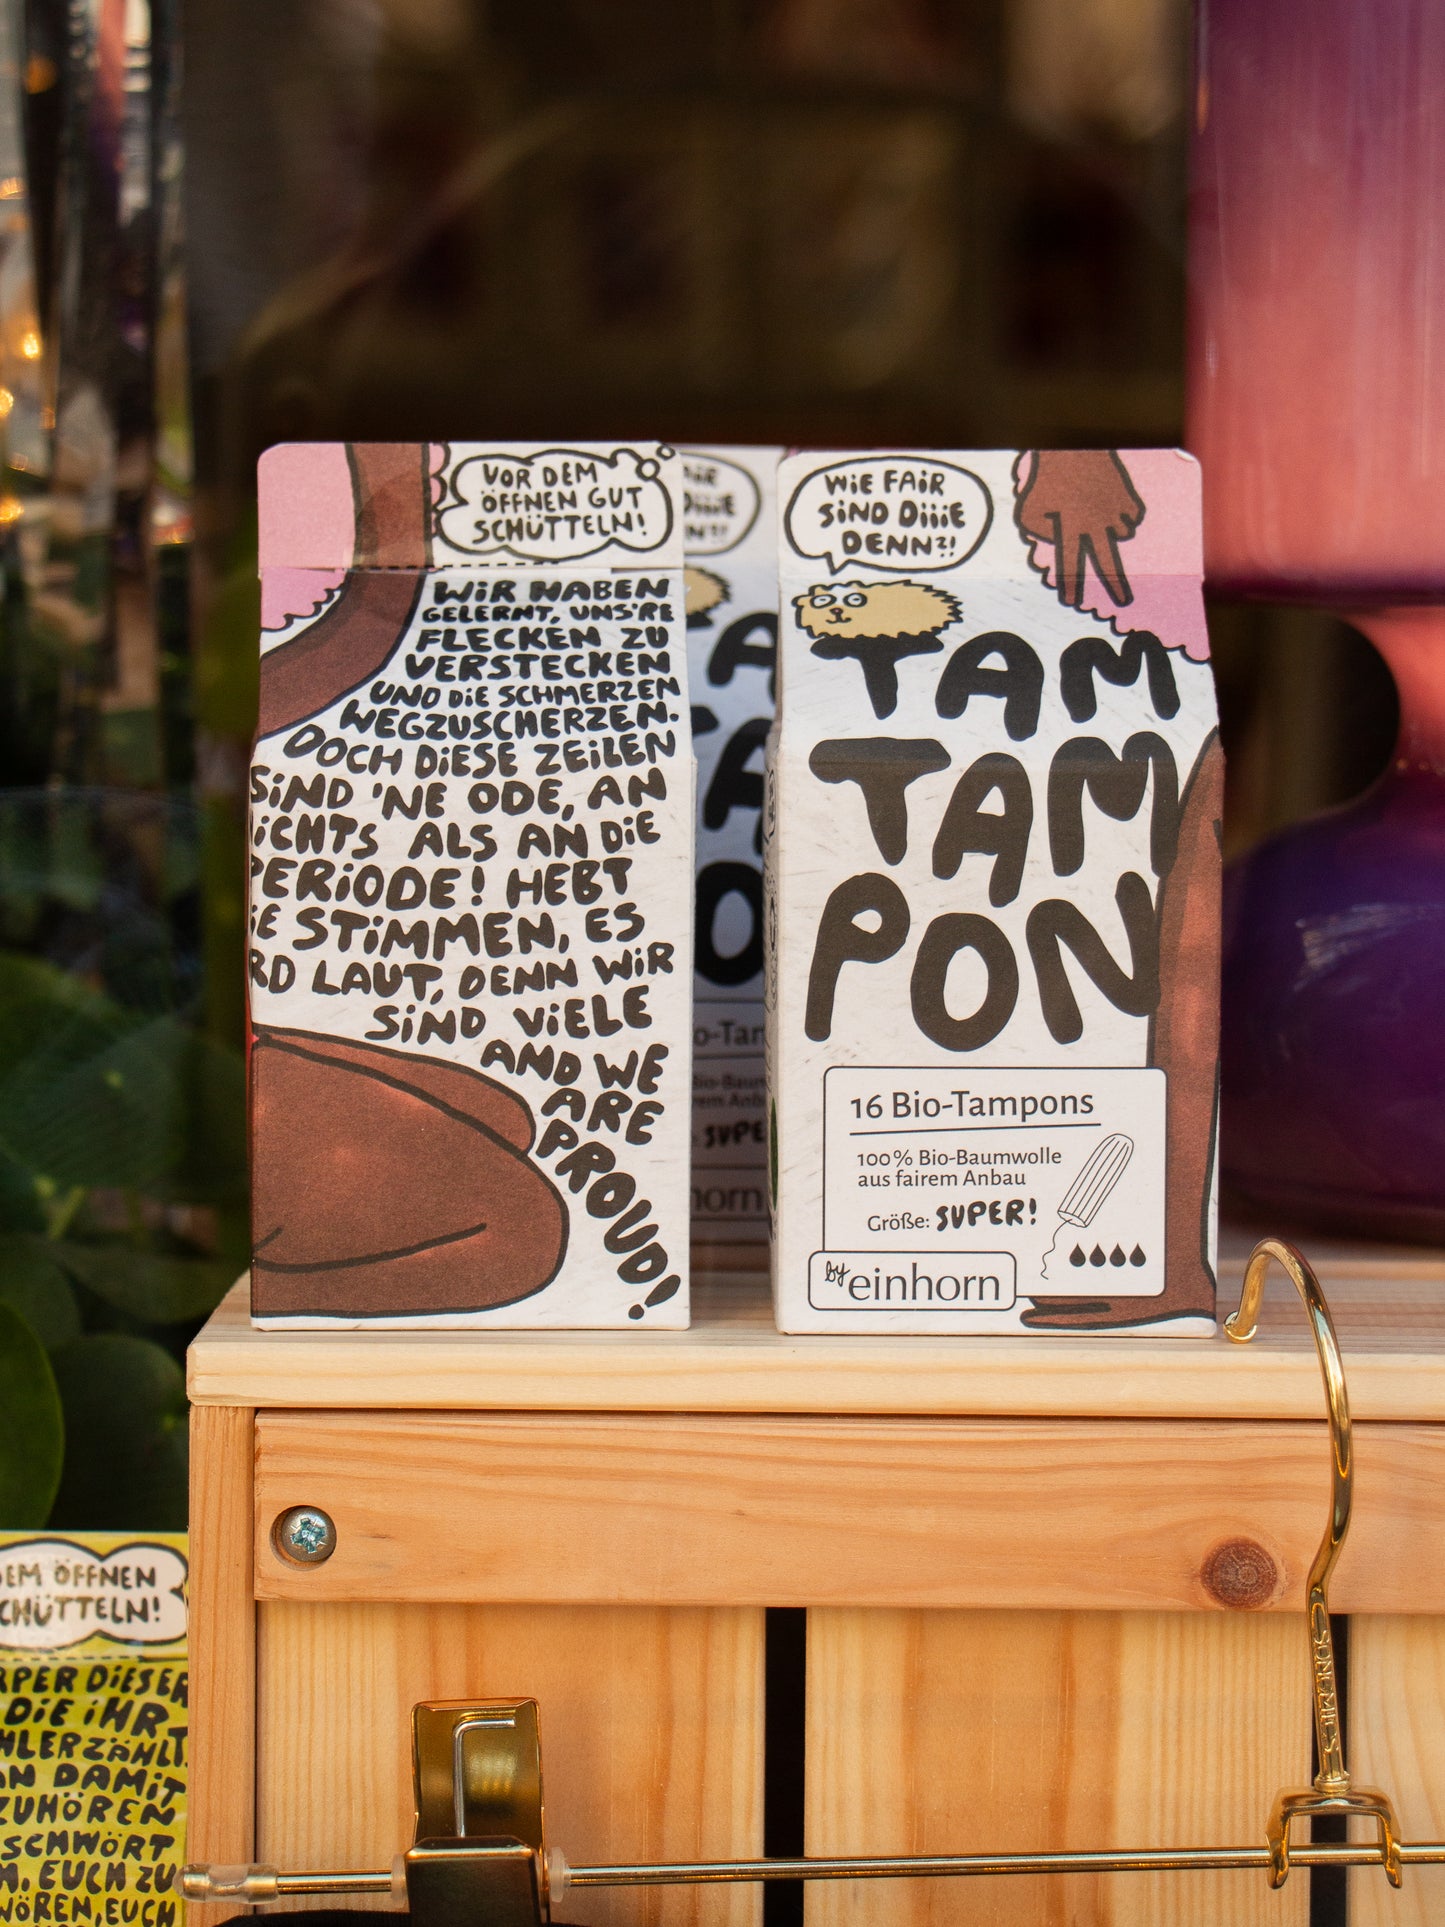 VOR DEM
ÖFFNEN GUT
SCHÜTTELN!
WIR HABEN
GELERNT, UNS'RE
FLECKEN ZU
VERSTECKEN
UND DIE SCHMERZEN
WEGZUSCHERZEN.
DOCH DIESE ZEILEN
SIND 'NE ODE, AN
NICHTS ALS AN DIE
PERIODE! HEBT
STIMMEN, ES
LAUT, DENN WIR
SIND VIELE
AND WE
ARE
PROUD!
WIE FAIR
SIND DIIIE
DENN?!
TAM
TAM
PON
16 Bio-Tampons
100% Bio-Baumwolle
aus fairem Anbau
Größe: SUPER!
by einhorn
ÖFFNEN
DIESER
DIE IHR
DAMIT
ZUHÖREN
SCHWÖRT
EUCH ZU
EUCH